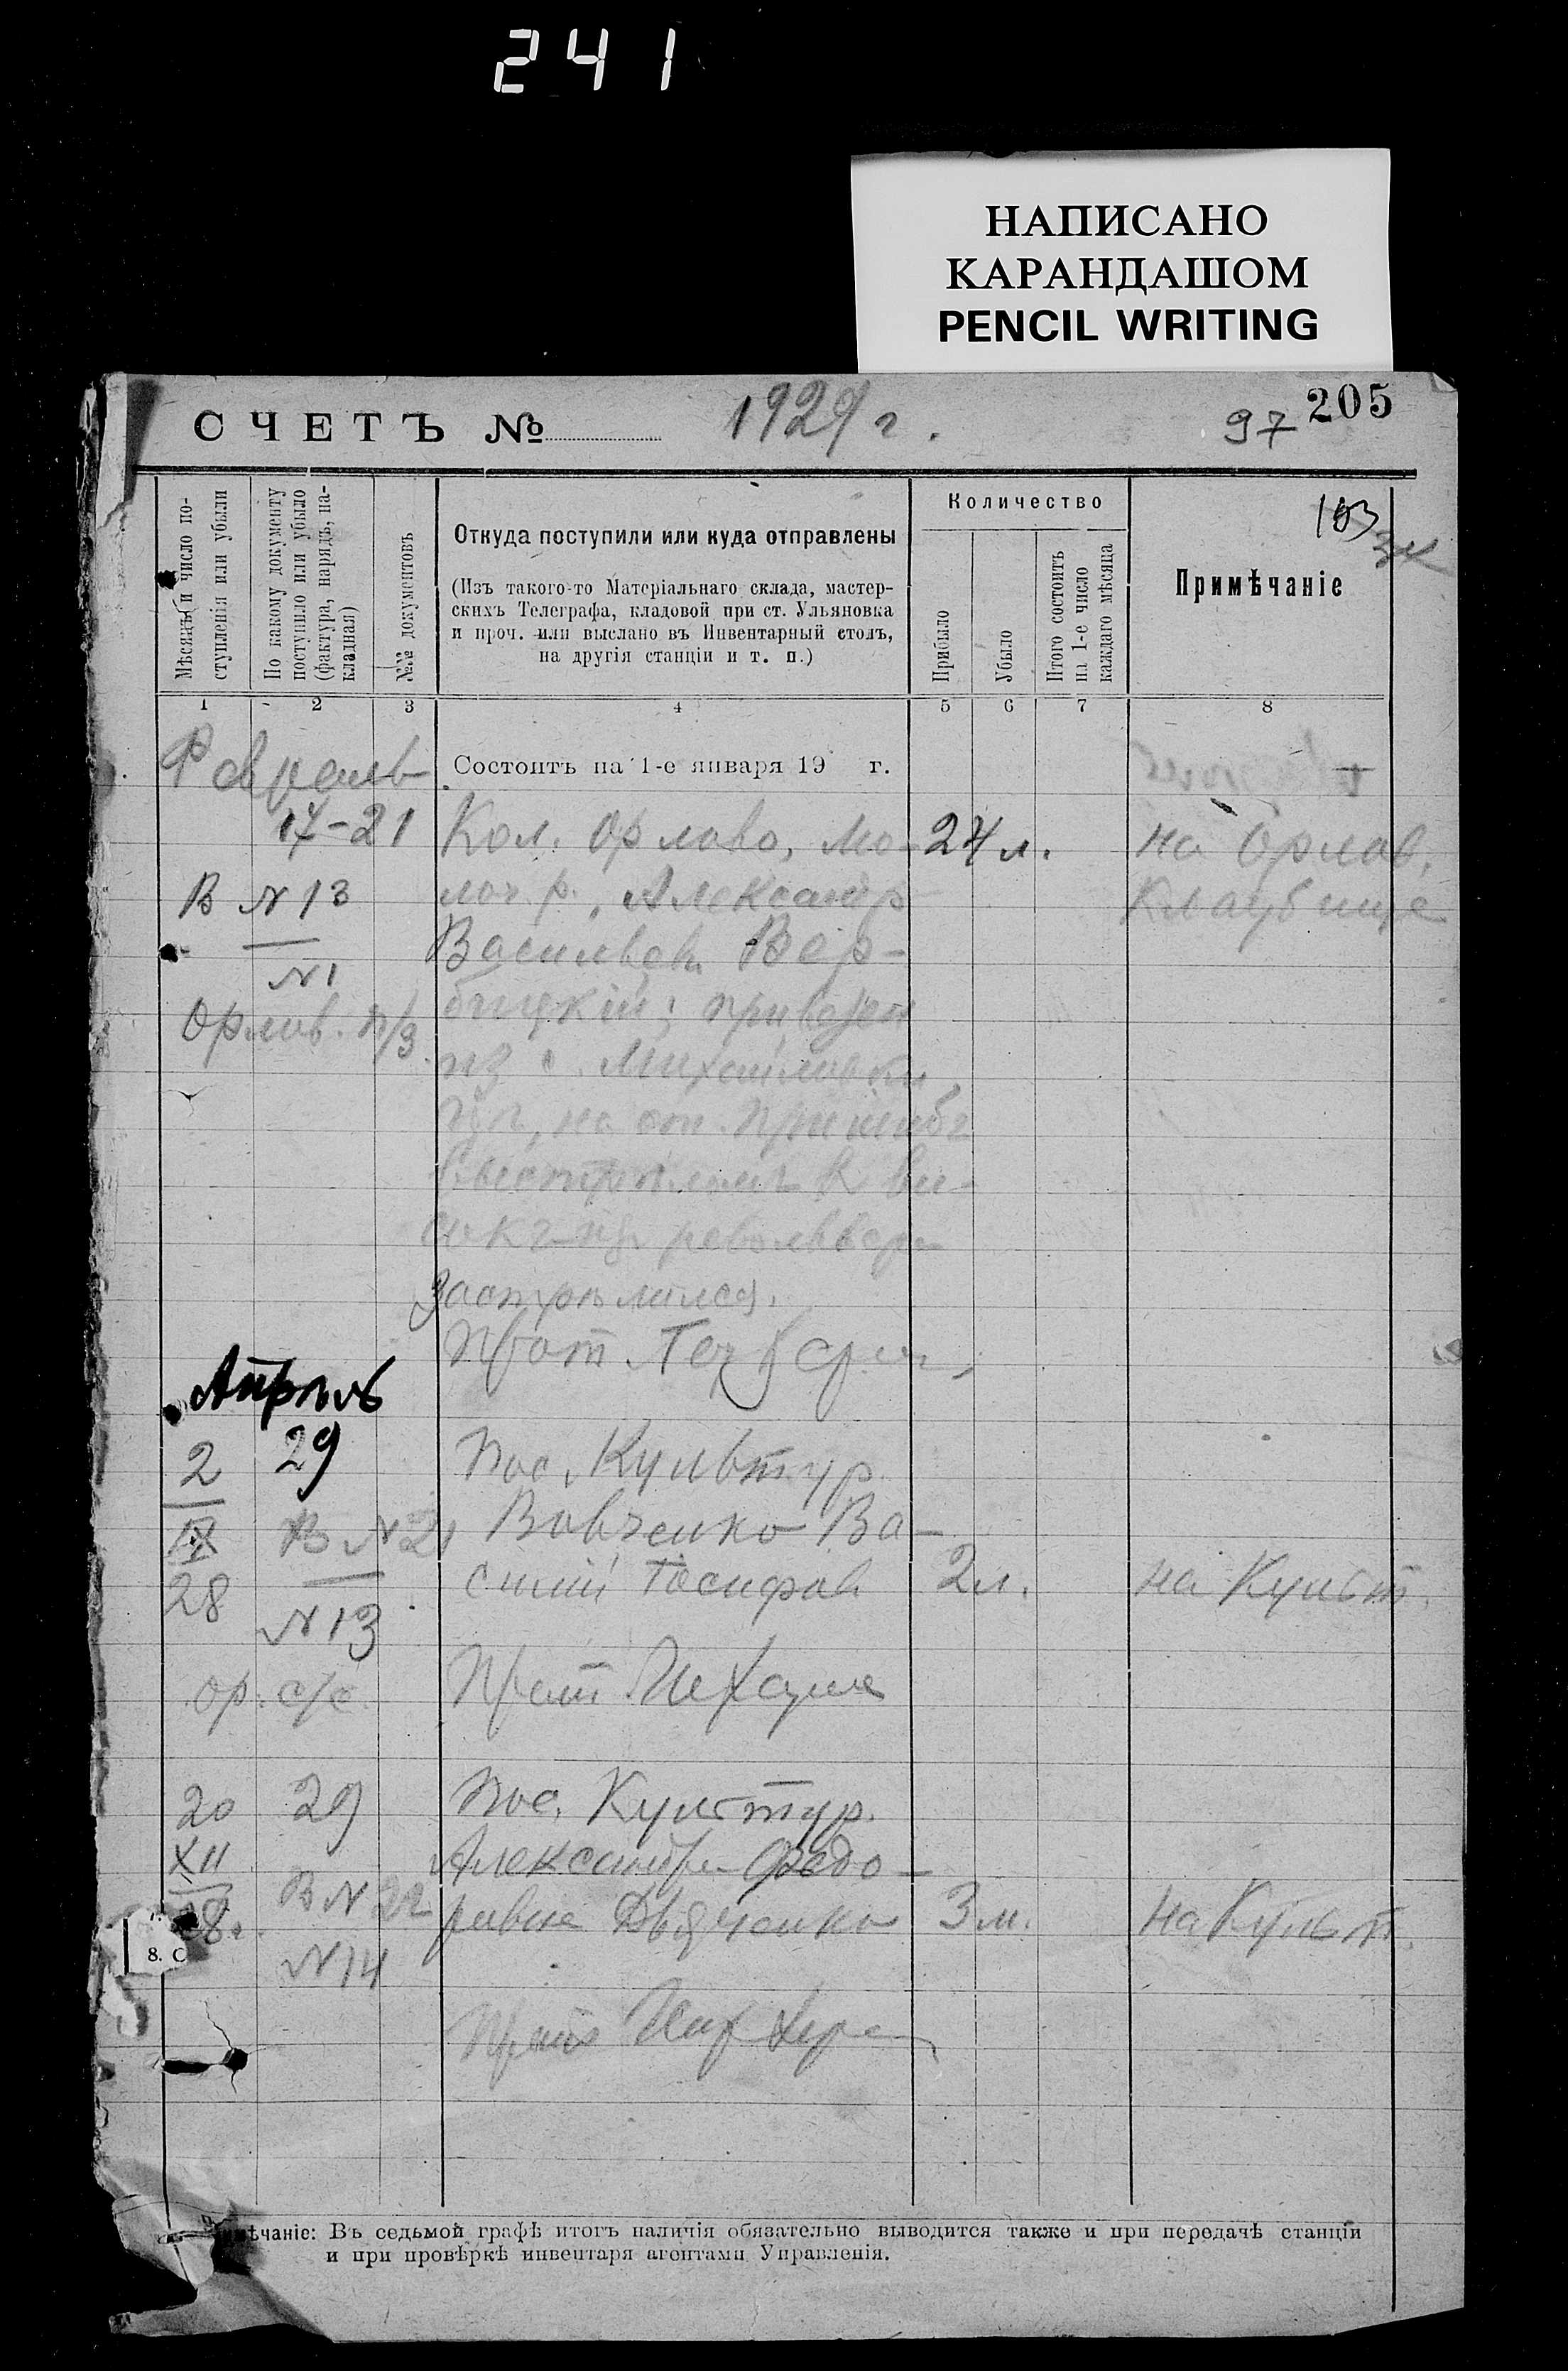 241
НАПИСАНО
КАРАНДАШОМ
PENCIL WRITING
СЧЕТЪ № 1929 г. 97 205
103
Мѣсяцъ и число поступленія или убыли
По какому документу поступило или убыло (фактура, нарядъ, накладная)
№№ документовъ
Откуда поступили или куда отправлены
(Изъ такого-то Матеріальнаго склада, мастер-
скихъ Телеграфа, кладовой при ст. Ульяновка
и проч. или выслано въ Инвентарный столъ,
на другія станціи и т. п.)
Количество
Прибыло
Убыло
Итого состоитъ на 1-е число каждаго мѣсяца
Примѣчаніе
1 2 3 4 5 6 7 8
Февраль
Состоитъ на 1-е января 19 г.
17-21 Кол. Орлово, Мо- 24 л. на Орлов.
В N 13 лоч. р., Александр
Васильев Вер-
N1
бицкій; привезен
Орлов.
из с. Михайловки,
застрѣлился.
Прот.
Апрѣль
2 29 Пос. Культур.
IX В N 21 Вовченко Ва-
28 силій Іосифов 2 л. на Культ.
N 13
ор. с/с. Прот.
20 29 Пос. Культур.
XII Александра Федо-
28. В N 22 ровна Дьяченко 3 м. на Культ.
8. С
N 14
Прот.
мѣчаніе: Въ седьмой графѣ итогъ наличія обязательно выводится также и при передачѣ станціи
и при провѣркѣ инвентаря агентами Управленія.